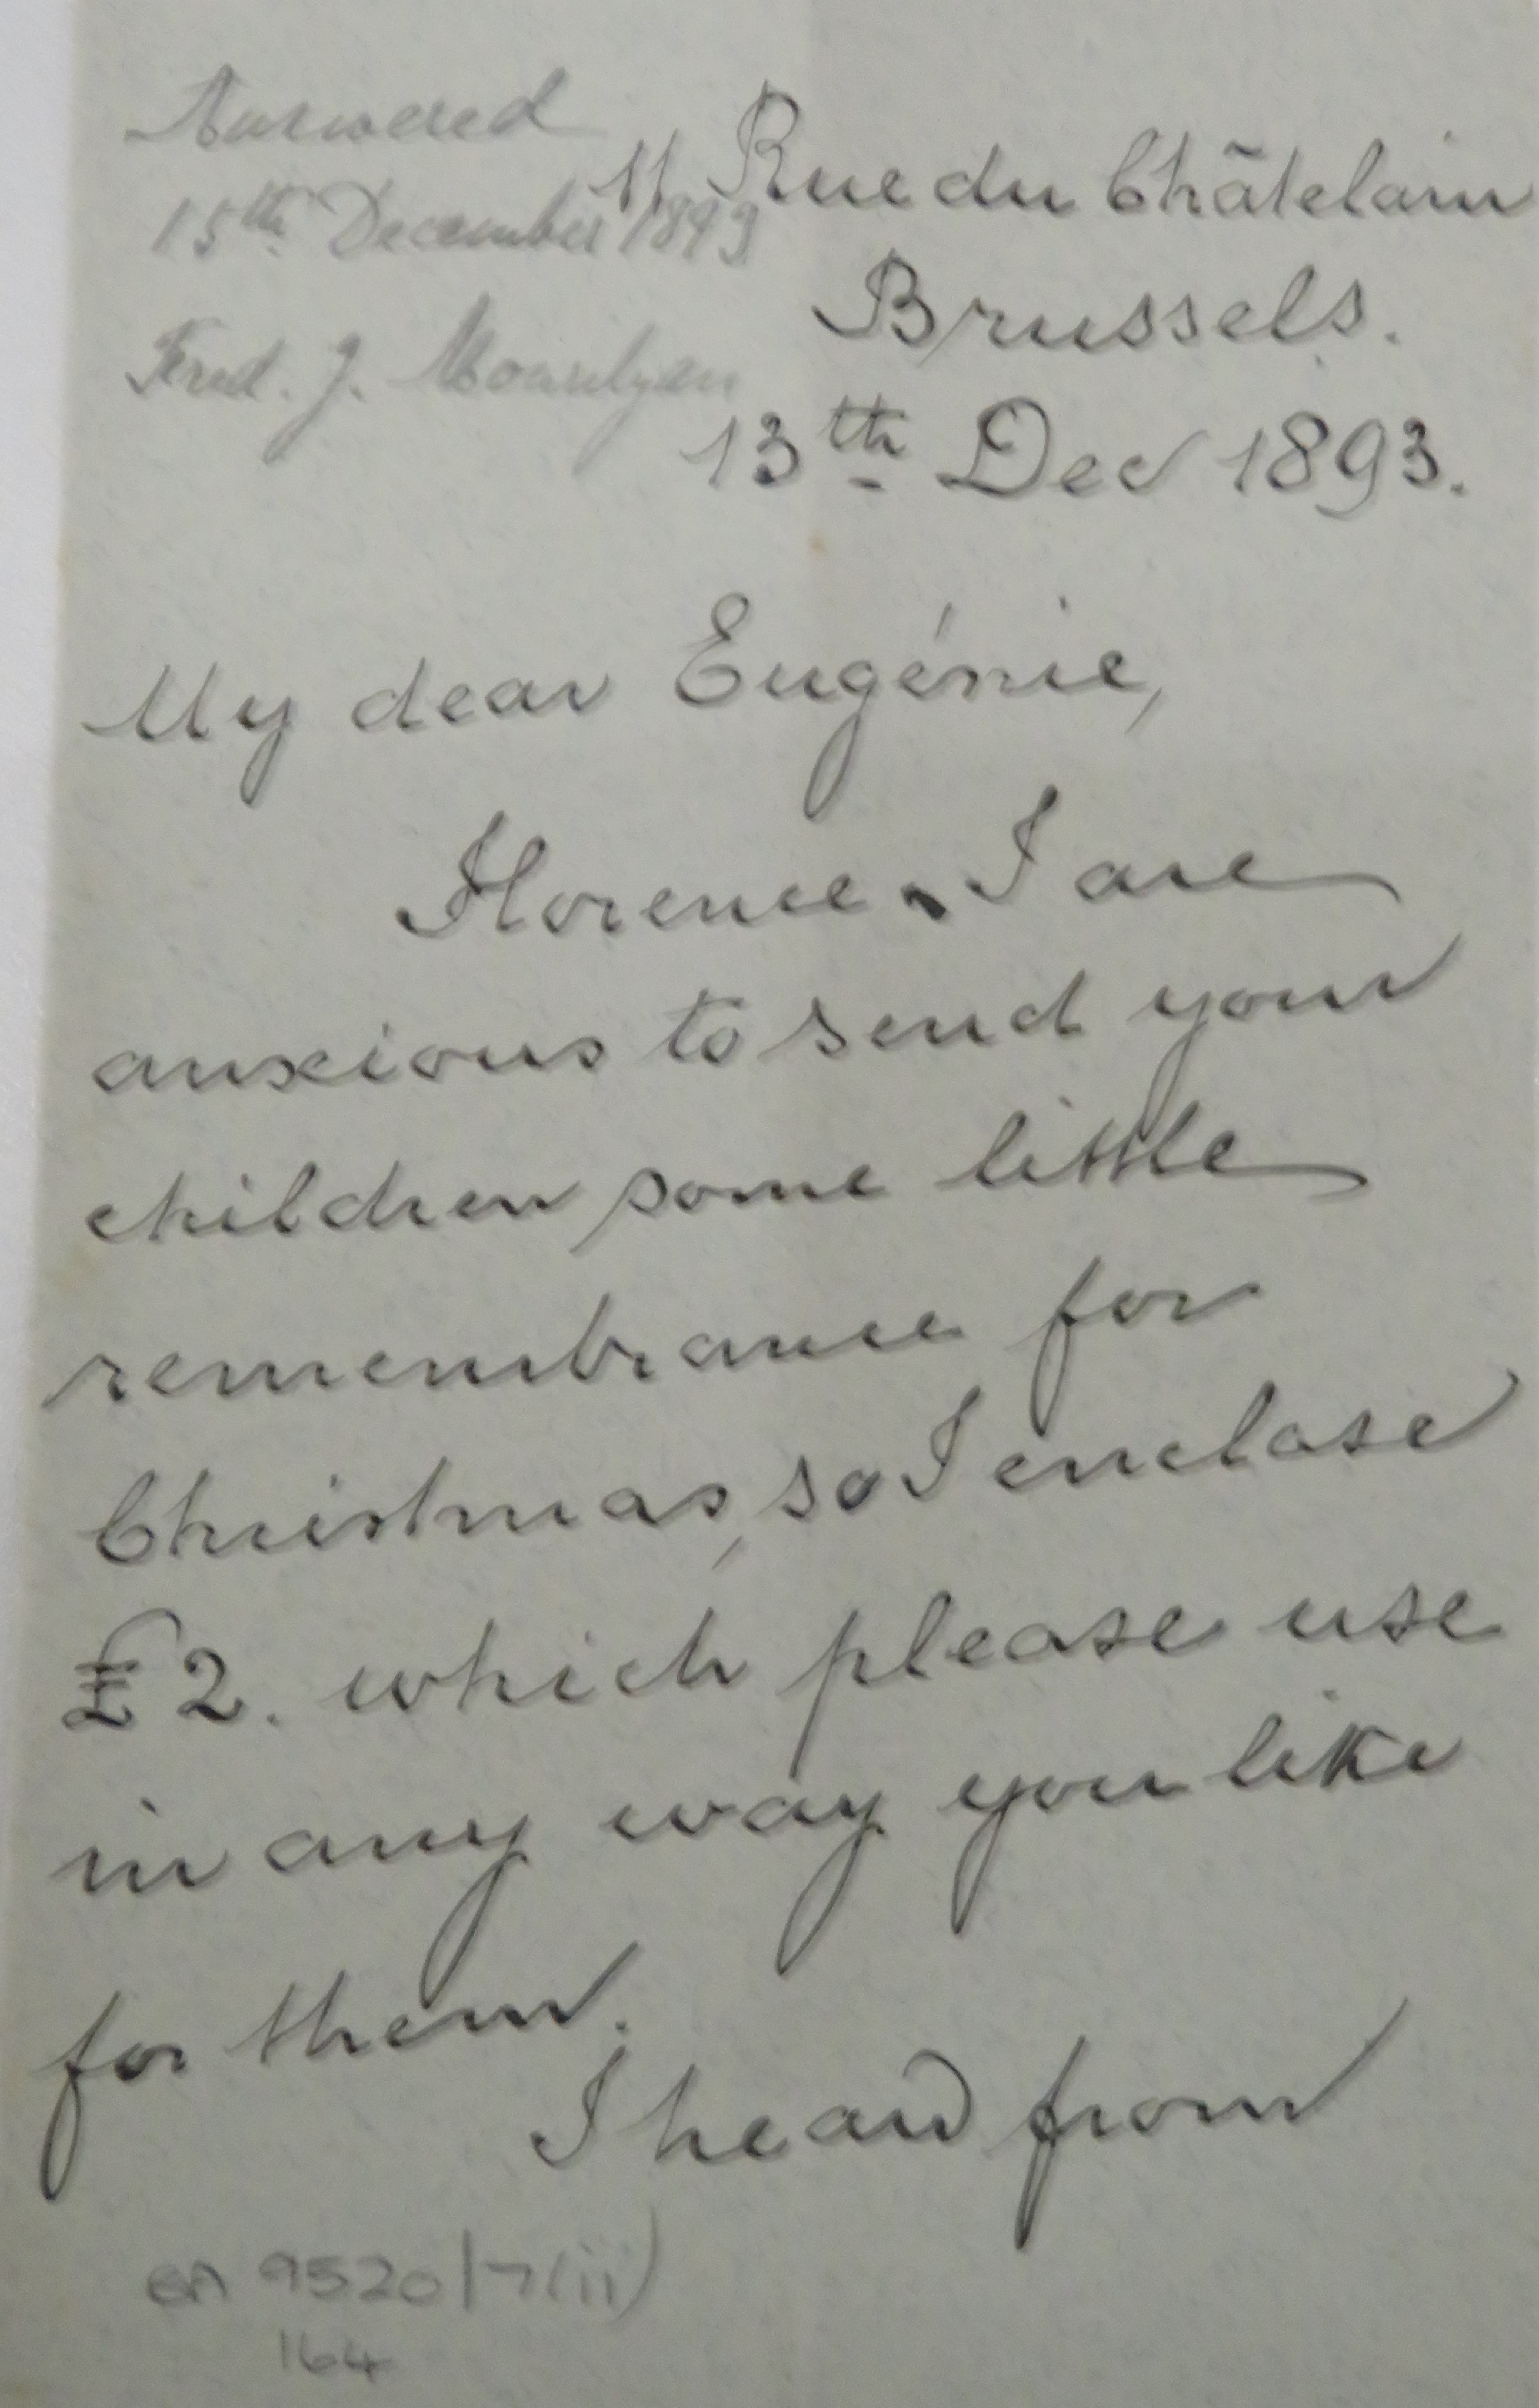 Answered
15th December 1893
Fred. J. Mouilyan
11 Rue du Châtelain
Brussels.
13th Dec 1893.
My dear Eugénie,
Florence & I are
anxious to send your
children some little
remembrance for
Christmas, so I enclose
£2. which please use
in any way you like
for them.
I heard from
GA 9520/7(ii)
164